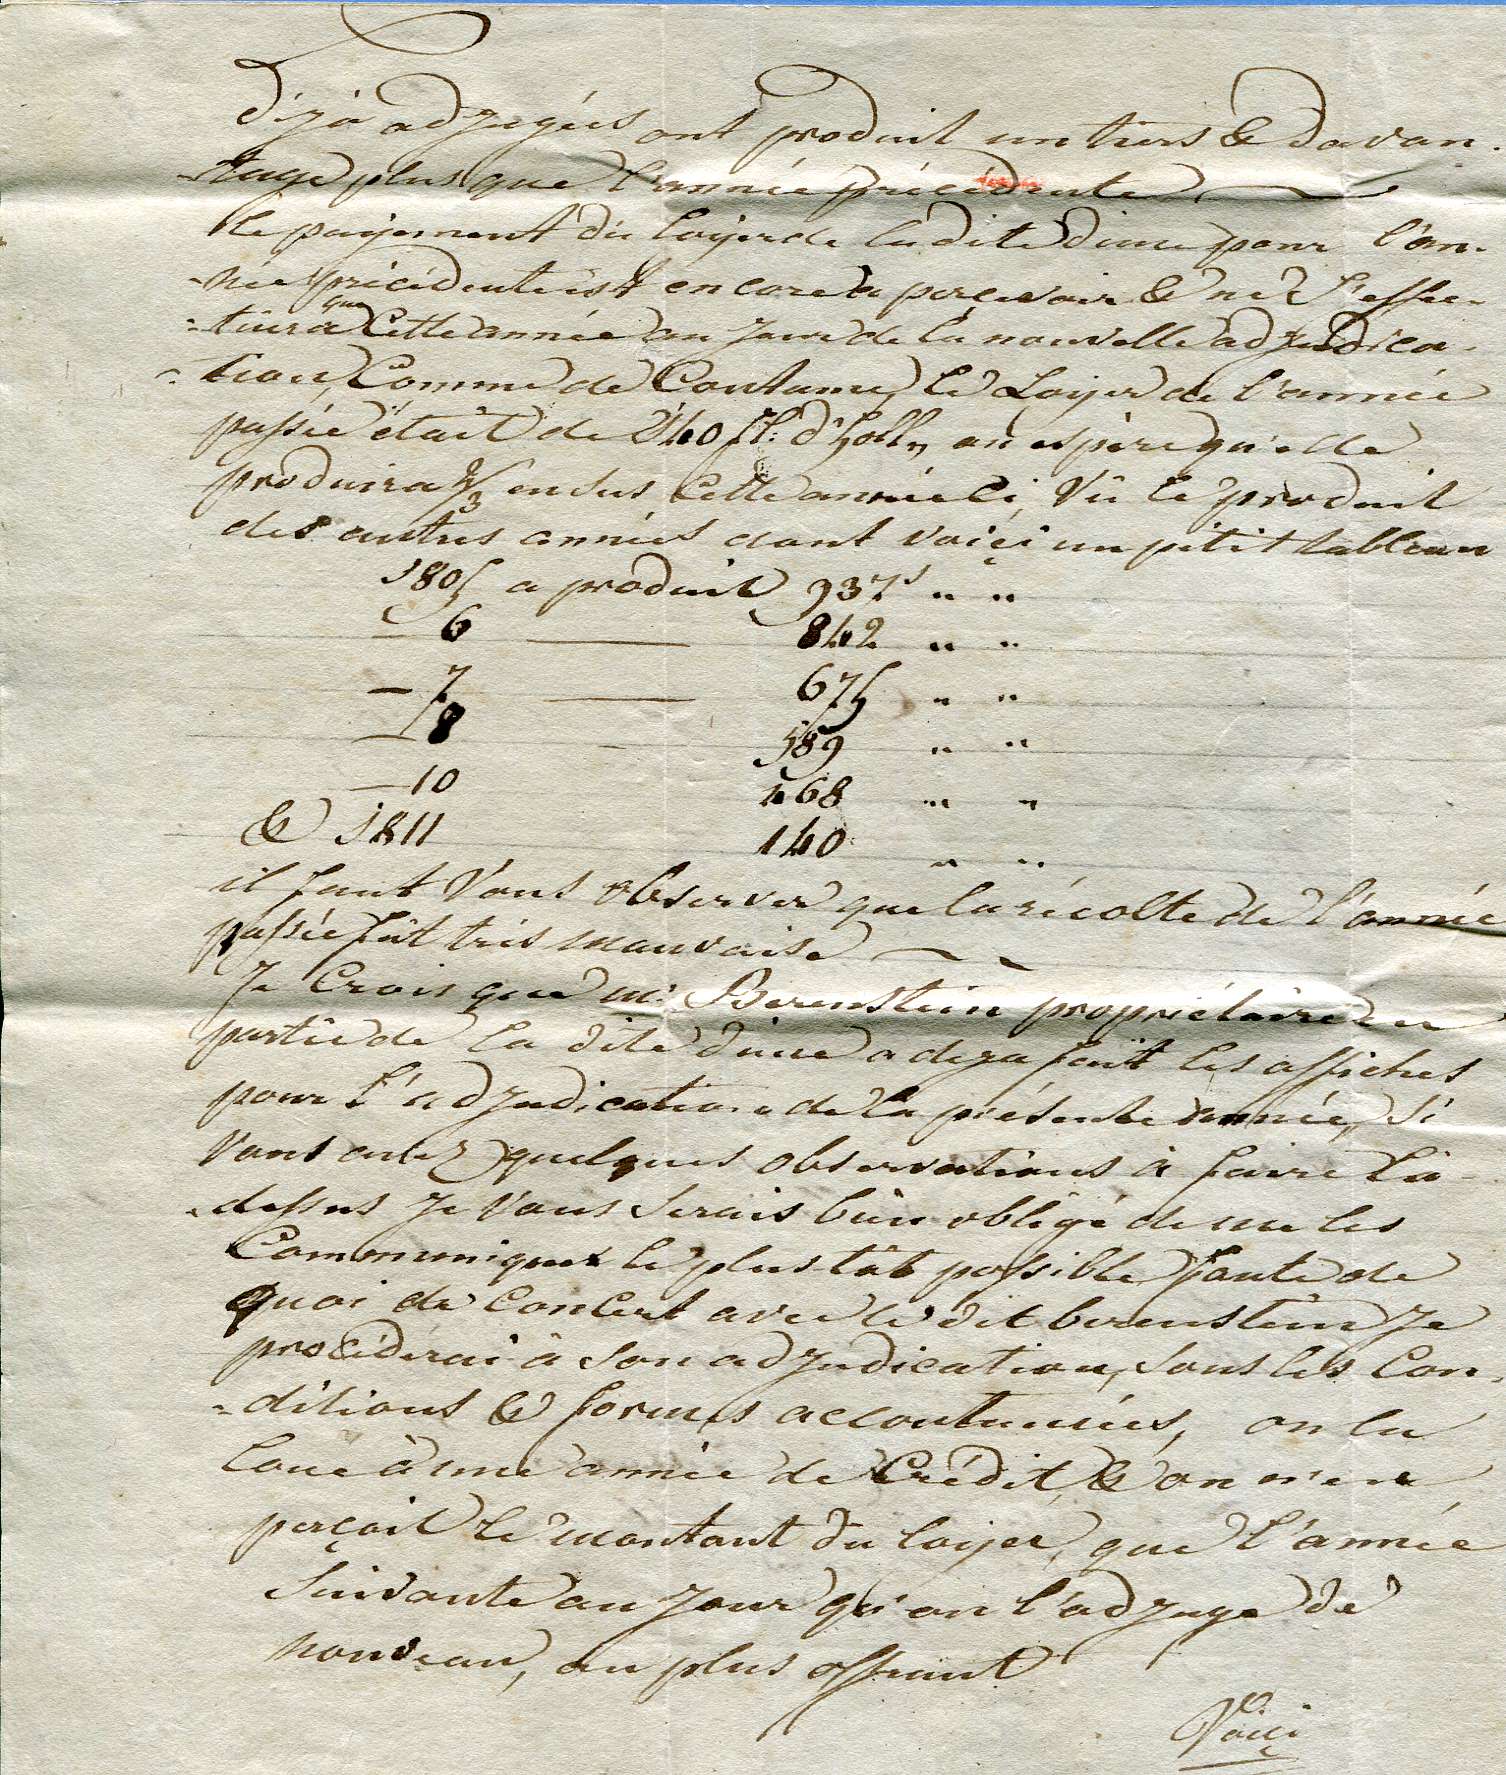 déja adjugées ont produit un tiers & davan-
-tage plus que l'année précédente
le payement du loyer de la dite dime pour l'an-
-née précédente est encore a percevoir & ne s'effec-
-tuera que Cette année au jour de la nouvelle adjudica-
-tion, Comme de Coutume, le Loyer de l'année
passée était de 140 fl: d'holl, on espère qu'elle
produira ⅔ en sus Cette année Ci, Vû le produit
des autres années dont voiçi un pétit tableau
1805 a produit 937 " "
— 6 — 842 " "
— 7 — 675 " "
— 8 — 589 " "
— 10 468 " "
& 1811 140 " "
il faut Vous observer que la récolte de l'année
passée fût très mauvaise
Je Crois que mr Berenstein propriétaire en
partie de la dite dime a deja fait les affiches
pour l'adjudication de la présente année, Si
Vous avez quelques observations à faire là-
-dessus Je Vous Serais bien obligé de me les
Communiquer le plus tôt possible faute de
quoi de Concert avec le dit berenstein Je
procéderai à Son adjudication, Sous les Con-
-ditions & formes accoutumées, on la
Loue à une année de Crédit, & on n'en
perçoit le montant du loyer, que l'année
Suivante au Jour qu'on l'adjuge de
nouveau, au plus offrant
Voiçi